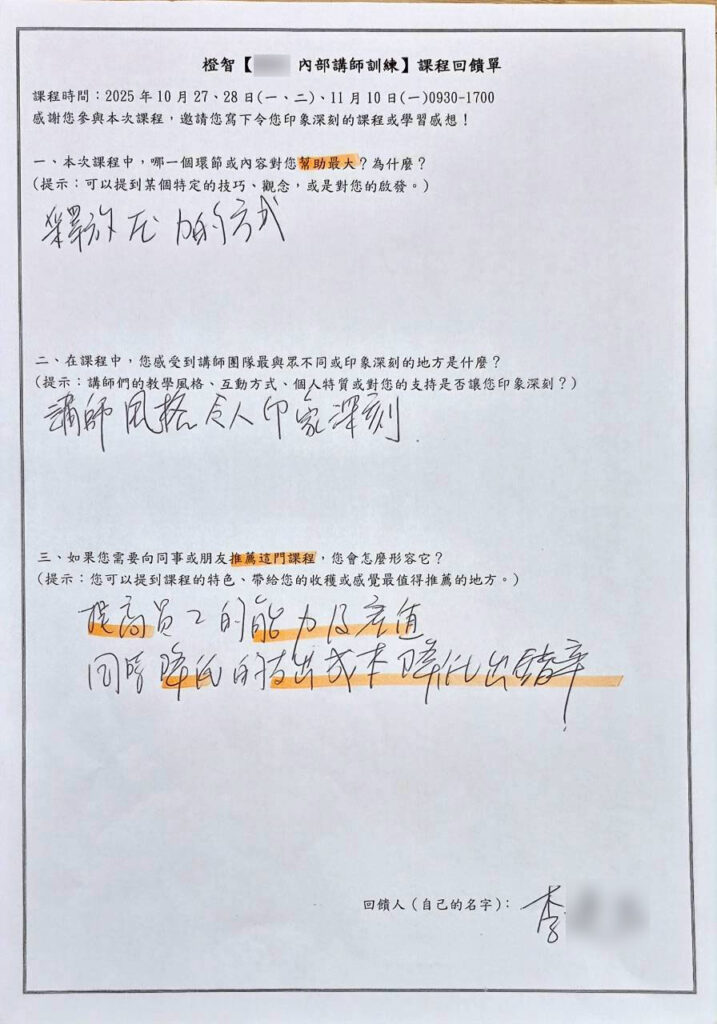 橙智【 內部講師訓練】課程回饋單
課程時間：2025 年 10 月 27、28 日(一、二)、11 月 10 日(一)0930-1700
感謝您參與本次課程，邀請您寫下令您印象深刻的課程或學習感想！
一、本次課程中，哪一個環節或內容對您幫助最大？為什麼？
(提示：可以提到某個特定的技巧、觀念，或是對您的啟發。)
釋放压力的方式
二、在課程中，您感受到講師團隊最與眾不同或印象深刻的地方是什麼？
(提示：講師們的教學風格、互動方式、個人特質或對您的支持是否讓您印象深刻？)
講師風格令人印象深刻.
三、如果您需要向同事或朋友推薦這門課程，您會怎麼形容它？
(提示：您可以提到課程的特色、帶給您的收穫或感覺最值得推薦的地方。)
提高員工的能力及產值
同時降低的支出成本降低出錯率!
回饋人（自己的名字）：李